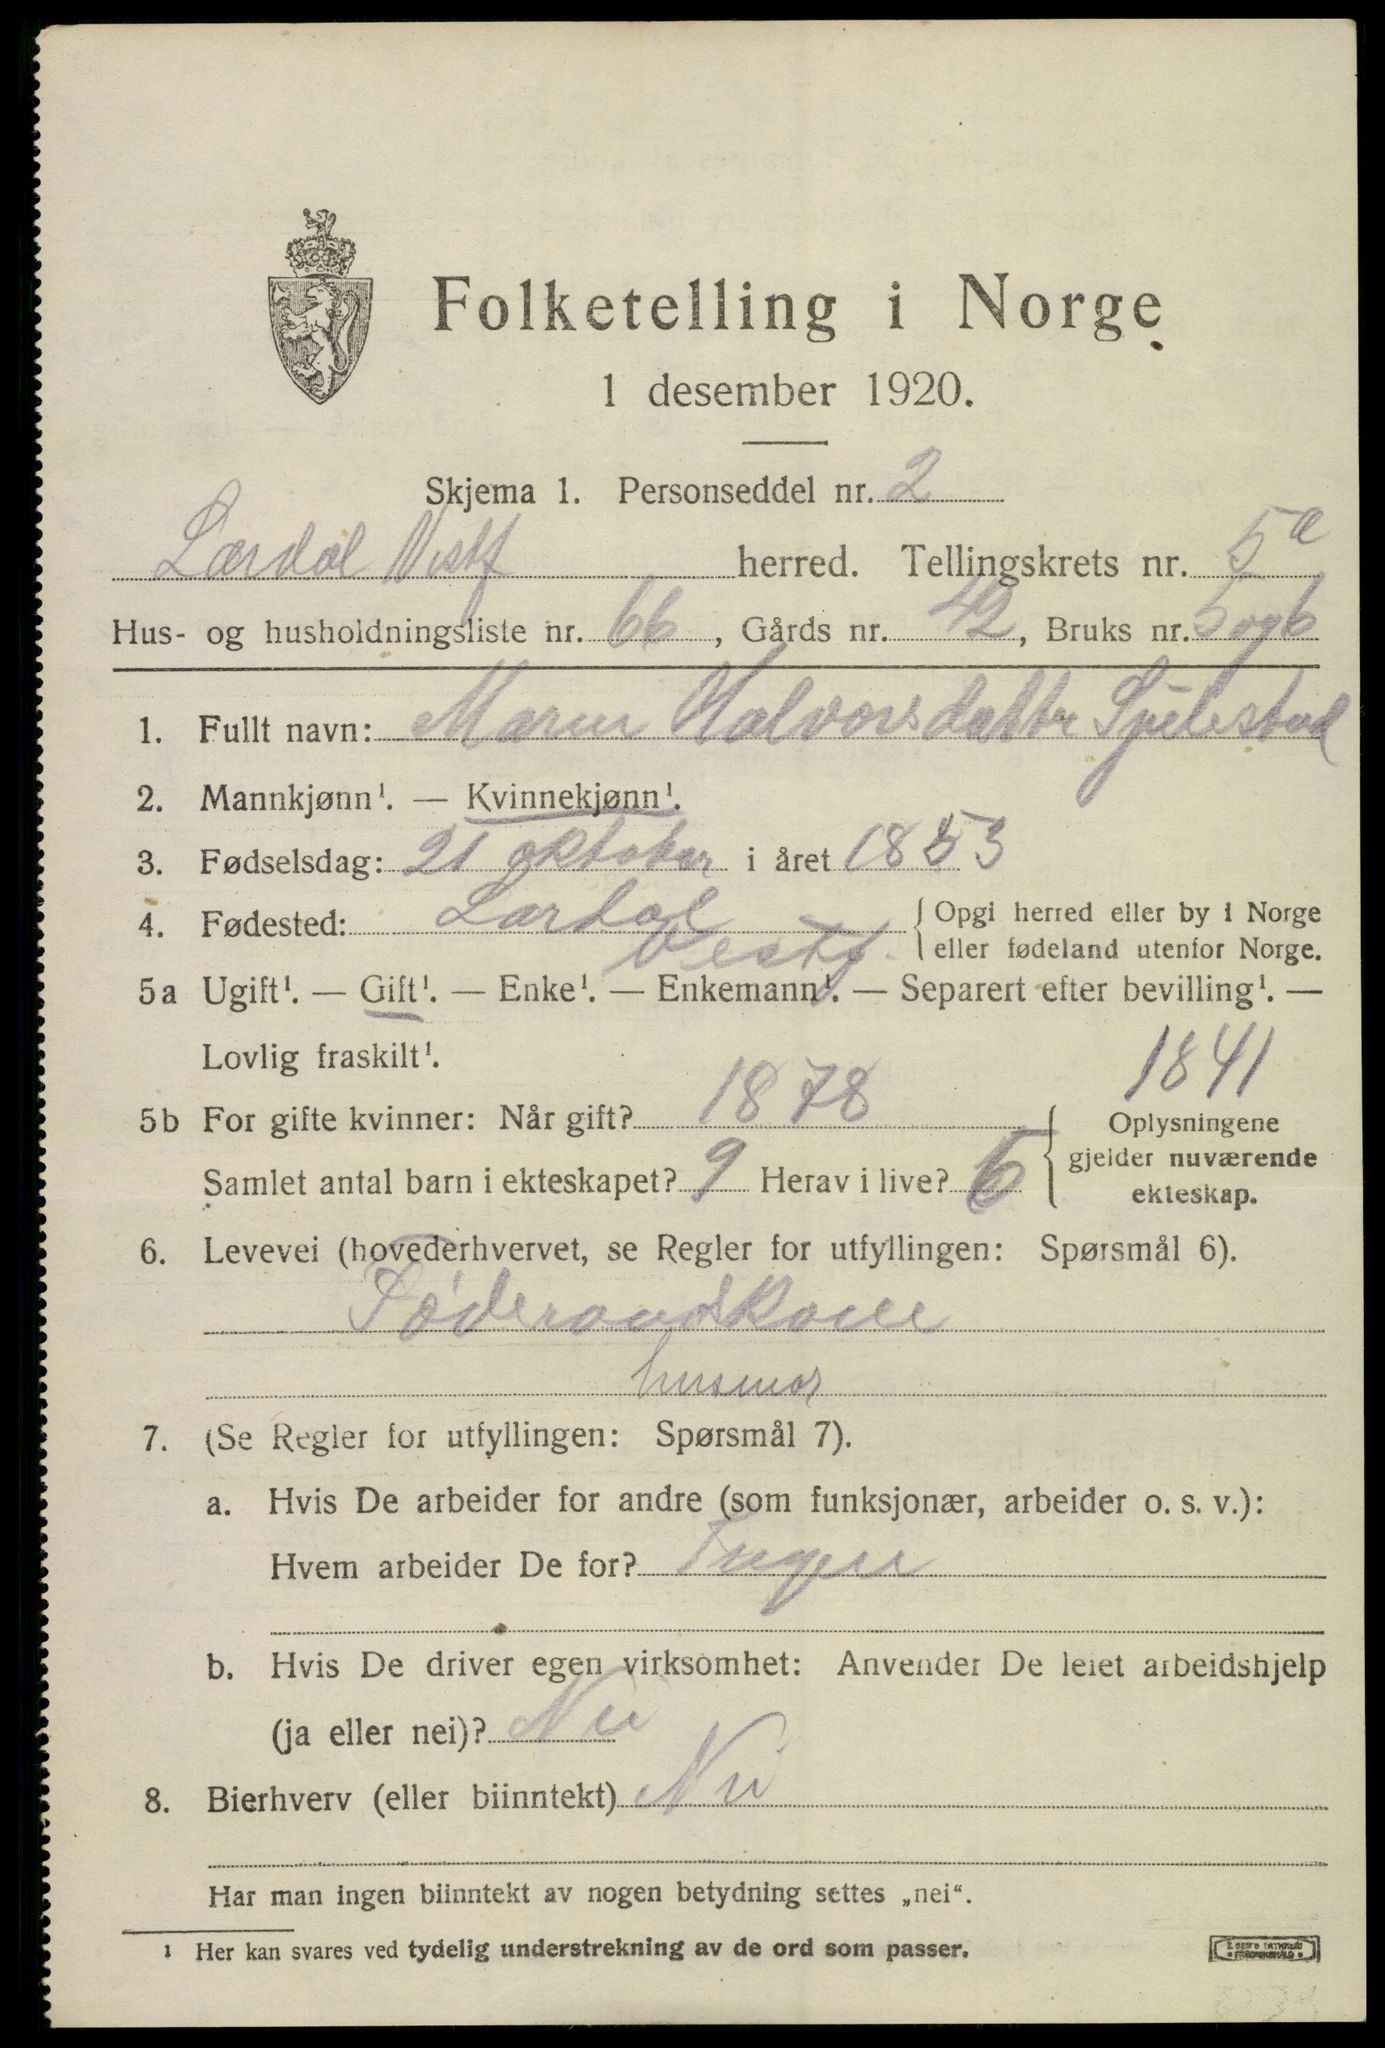 Folketelling i Norge
1 desember 1920.
Skjema 1. Personseddel nr. 2
Lardal Vestf herred. Tellingskrets nr. 5a
Hus- og husholdningsliste nr. 66, Gårds nr. 42, Bruks nr. 5 og 6
1. Fullt navn: Maren Halvorsdatter Sjulestad
2. Mannkjønn¹. — Kvinnekjønn¹.
3. Fødselsdag: 21 oktober i året 1853
4. Fødested: Lardal Vestf. { Opgi herred eller by i Norge
eller fødeland utenfor Norge.
5a Ugift¹. — Gift¹. — Enke¹. — Enkemann¹. — Separert efter bevilling¹. —
Lovlig fraskilt¹.
1841
5b For gifte kvinner: Når gift? 1878
Samlet antal barn i ekteskapet? 9 Herav i live? 6
Oplysningene
gjelder nuværende
ekteskap.
6. Levevei (hovederhvervet, se Regler for utfyllingen: Spørsmål 6).
Føderaadskone
husmor
7. (Se Regler for utfyllingen: Spørsmål 7).
a. Hvis De arbeider for andre (som funksjonær, arbeider o. s. v.):
Hvem arbeider De for? Ingen
b. Hvis De driver egen virksomhet: Anvender De leiet arbeidshjelp
(ja eller nei)? Nei
8. Bierhverv (eller biinntekt) Nei
Har man ingen biinntekt av nogen betydning settes „nei“.
1 Her kan svares ved tydelig understrekning av de ord som passer.